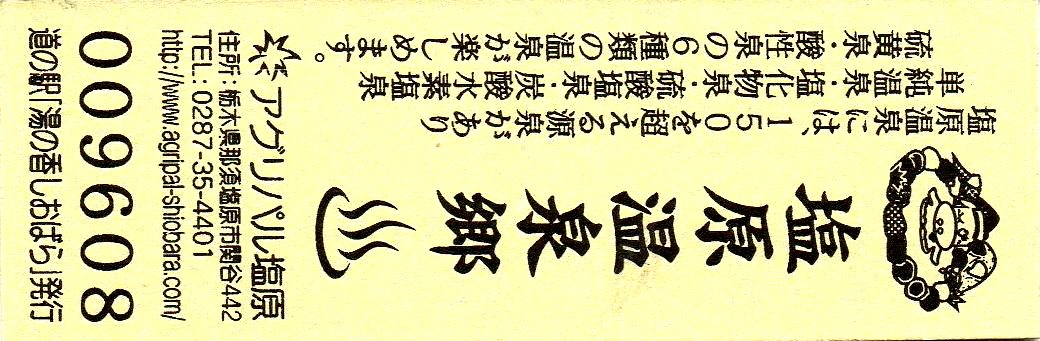 塩原温泉には、150を超える源泉があり
単純温泉・塩化物泉・硫酸塩泉・炭酸水素塩泉
硫黄泉・酸性泉の6種類の温泉が楽しめます。
塩原温泉郷
アグリパル塩原
住所:栃木県那須塩原市関谷442
TEL:0287-35-4401
http://www.agripal-shiobara.com/
009608
道の駅「湯の香しおばら」発行